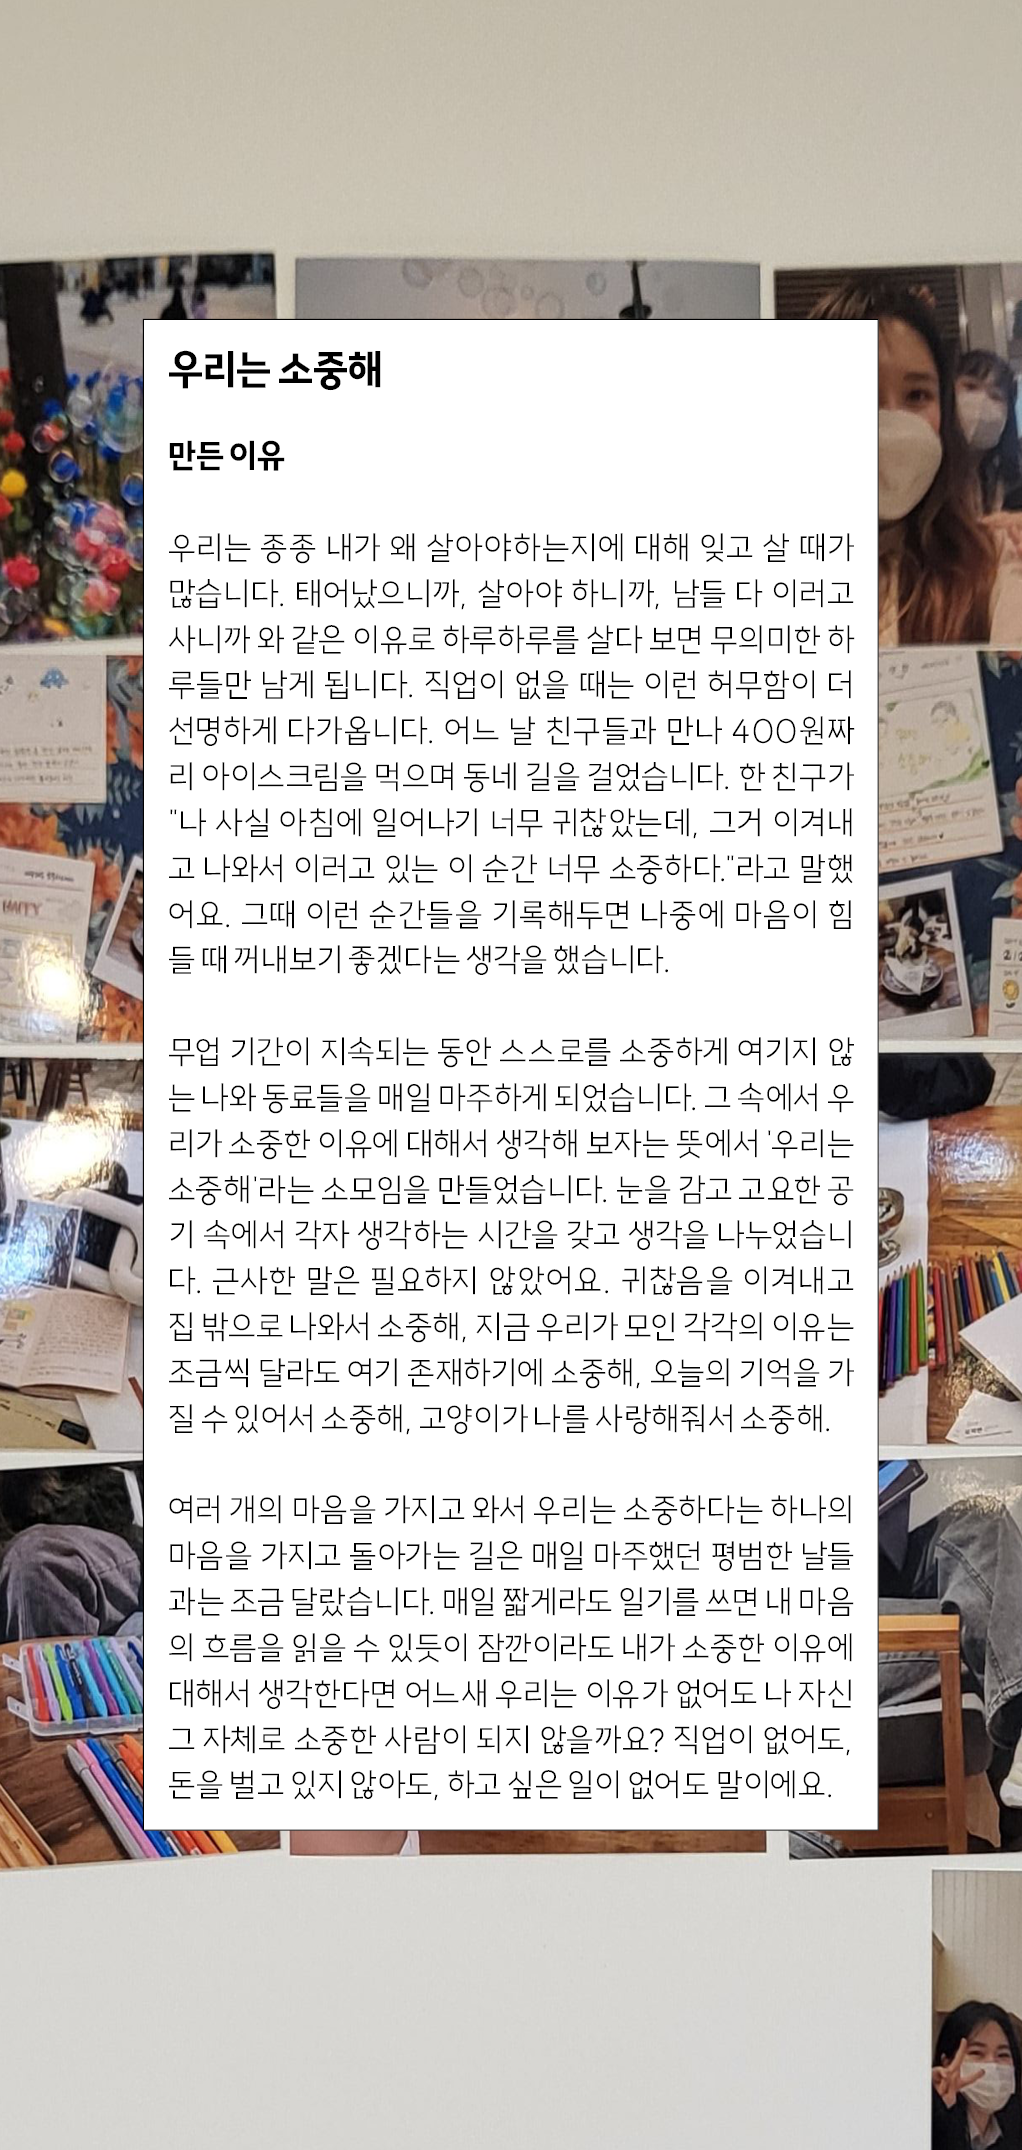 우리는 소중해
만든 이유
우리는 종종 내가 왜 살아야하는지에 대해 잊고 살 때가
많습니다. 태어났으니까, 살아야 하니까, 남들 다 이러고
사니까 와 같은 이유로 하루하루를 살다 보면 무의미한 하
루들만 남게 됩니다. 직업이 없을 때는 이런 허무함이 더
선명하게 다가옵니다. 어느 날 친구들과 만나 400원짜
리 아이스크림을 먹으며 동네 길을 걸었습니다. 한 친구가
"나 사실 아침에 일어나기 너무 귀찮았는데, 그거 이겨내
고 나와서 이러고 있는 이 순간 너무 소중하다."라고 말했
어요. 그때 이런 순간들을 기록해두면 나중에 마음이 힘
들 때 꺼내보기 좋겠다는 생각을 했습니다.
무업 기간이 지속되는 동안 스스로를 소중하게 여기지 않
는 나와 동료들을 매일 마주하게 되었습니다. 그 속에서 우
리가 소중한 이유에 대해서 생각해 보자는 뜻에서 '우리는
소중해'라는 소모임을 만들었습니다. 눈을 감고 고요한 공
기 속에서 각자 생각하는 시간을 갖고 생각을 나누었습니
다. 근사한 말은 필요하지 않았어요. 귀찮음을 이겨내고
집 밖으로 나와서 소중해, 지금 우리가 모인 각각의 이유는
조금씩 달라도 여기 존재하기에 소중해, 오늘의 기억을 가
질 수 있어서 소중해, 고양이가 나를 사랑해줘서 소중해.
여러 개의 마음을 가지고 와서 우리는 소중하다는 하나의
마음을 가지고 돌아가는 길은 매일 마주했던 평범한 날들
과는 조금 달랐습니다. 매일 짧게라도 일기를 쓰면 내 마음
의 흐름을 읽을 수 있듯이 잠깐이라도 내가 소중한 이유에
대해서 생각한다면 어느새 우리는 이유가 없어도 나 자신
그 자체로 소중한 사람이 되지 않을까요? 직업이 없어도,
돈을 벌고 있지 않아도, 하고 싶은 일이 없어도 말이에요.
HAPPY